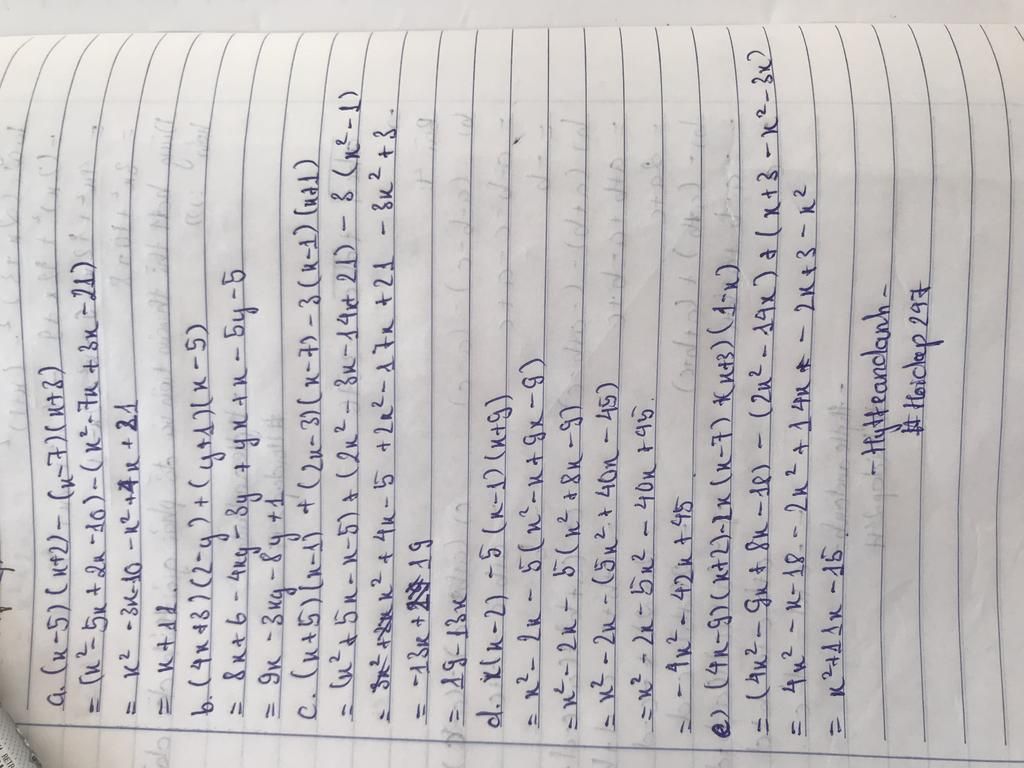 a. (x-5)(x+2) - (x-7)(x+3)
= (x² - 5x + 2x - 10) - (x² - 7x + 3x - 21)
= x² - 3x - 10 - x² + 4x + 21
= x + 11
b. (4x+3)(2-y) + (y+1)(x-5)
= 8x + 6 - 4xy - 3y + yx + x - 5y - 5
= 9x - 3xy - 8y + 1
c. (x+5)(x-1) + (2x-3)(x-7) - 3(x-1)(x+1)
= (x² + 5x - x - 5) + (2x² - 3x - 14x + 21) - 3(x² - 1)
= x² + 4x - 5 + 2x² - 17x + 21 - 3x² + 3
= -13x + 19
= 19 - 13x
d. x(x-2) - 5(x-1)(x+9)
= x² - 2x - 5(x² - x + 9x - 9)
= x² - 2x - 5(x² + 8x - 9)
= x² - 2x - (5x² + 40x - 45)
= x² - 2x - 5x² - 40x + 45
= - 4x² - 42x + 45
e) (4x-9)(x+2) - 2x(x-7) + (x+3)(1-x)
= (4x² - 9x + 8x - 18) - (2x² - 14x) + (x + 3 - x² - 3x)
= 4x² - x - 18 - 2x² + 14x - 2x + 3 - x²
= x² + 11x - 15
- Hytteandanh -
# Hoidap247